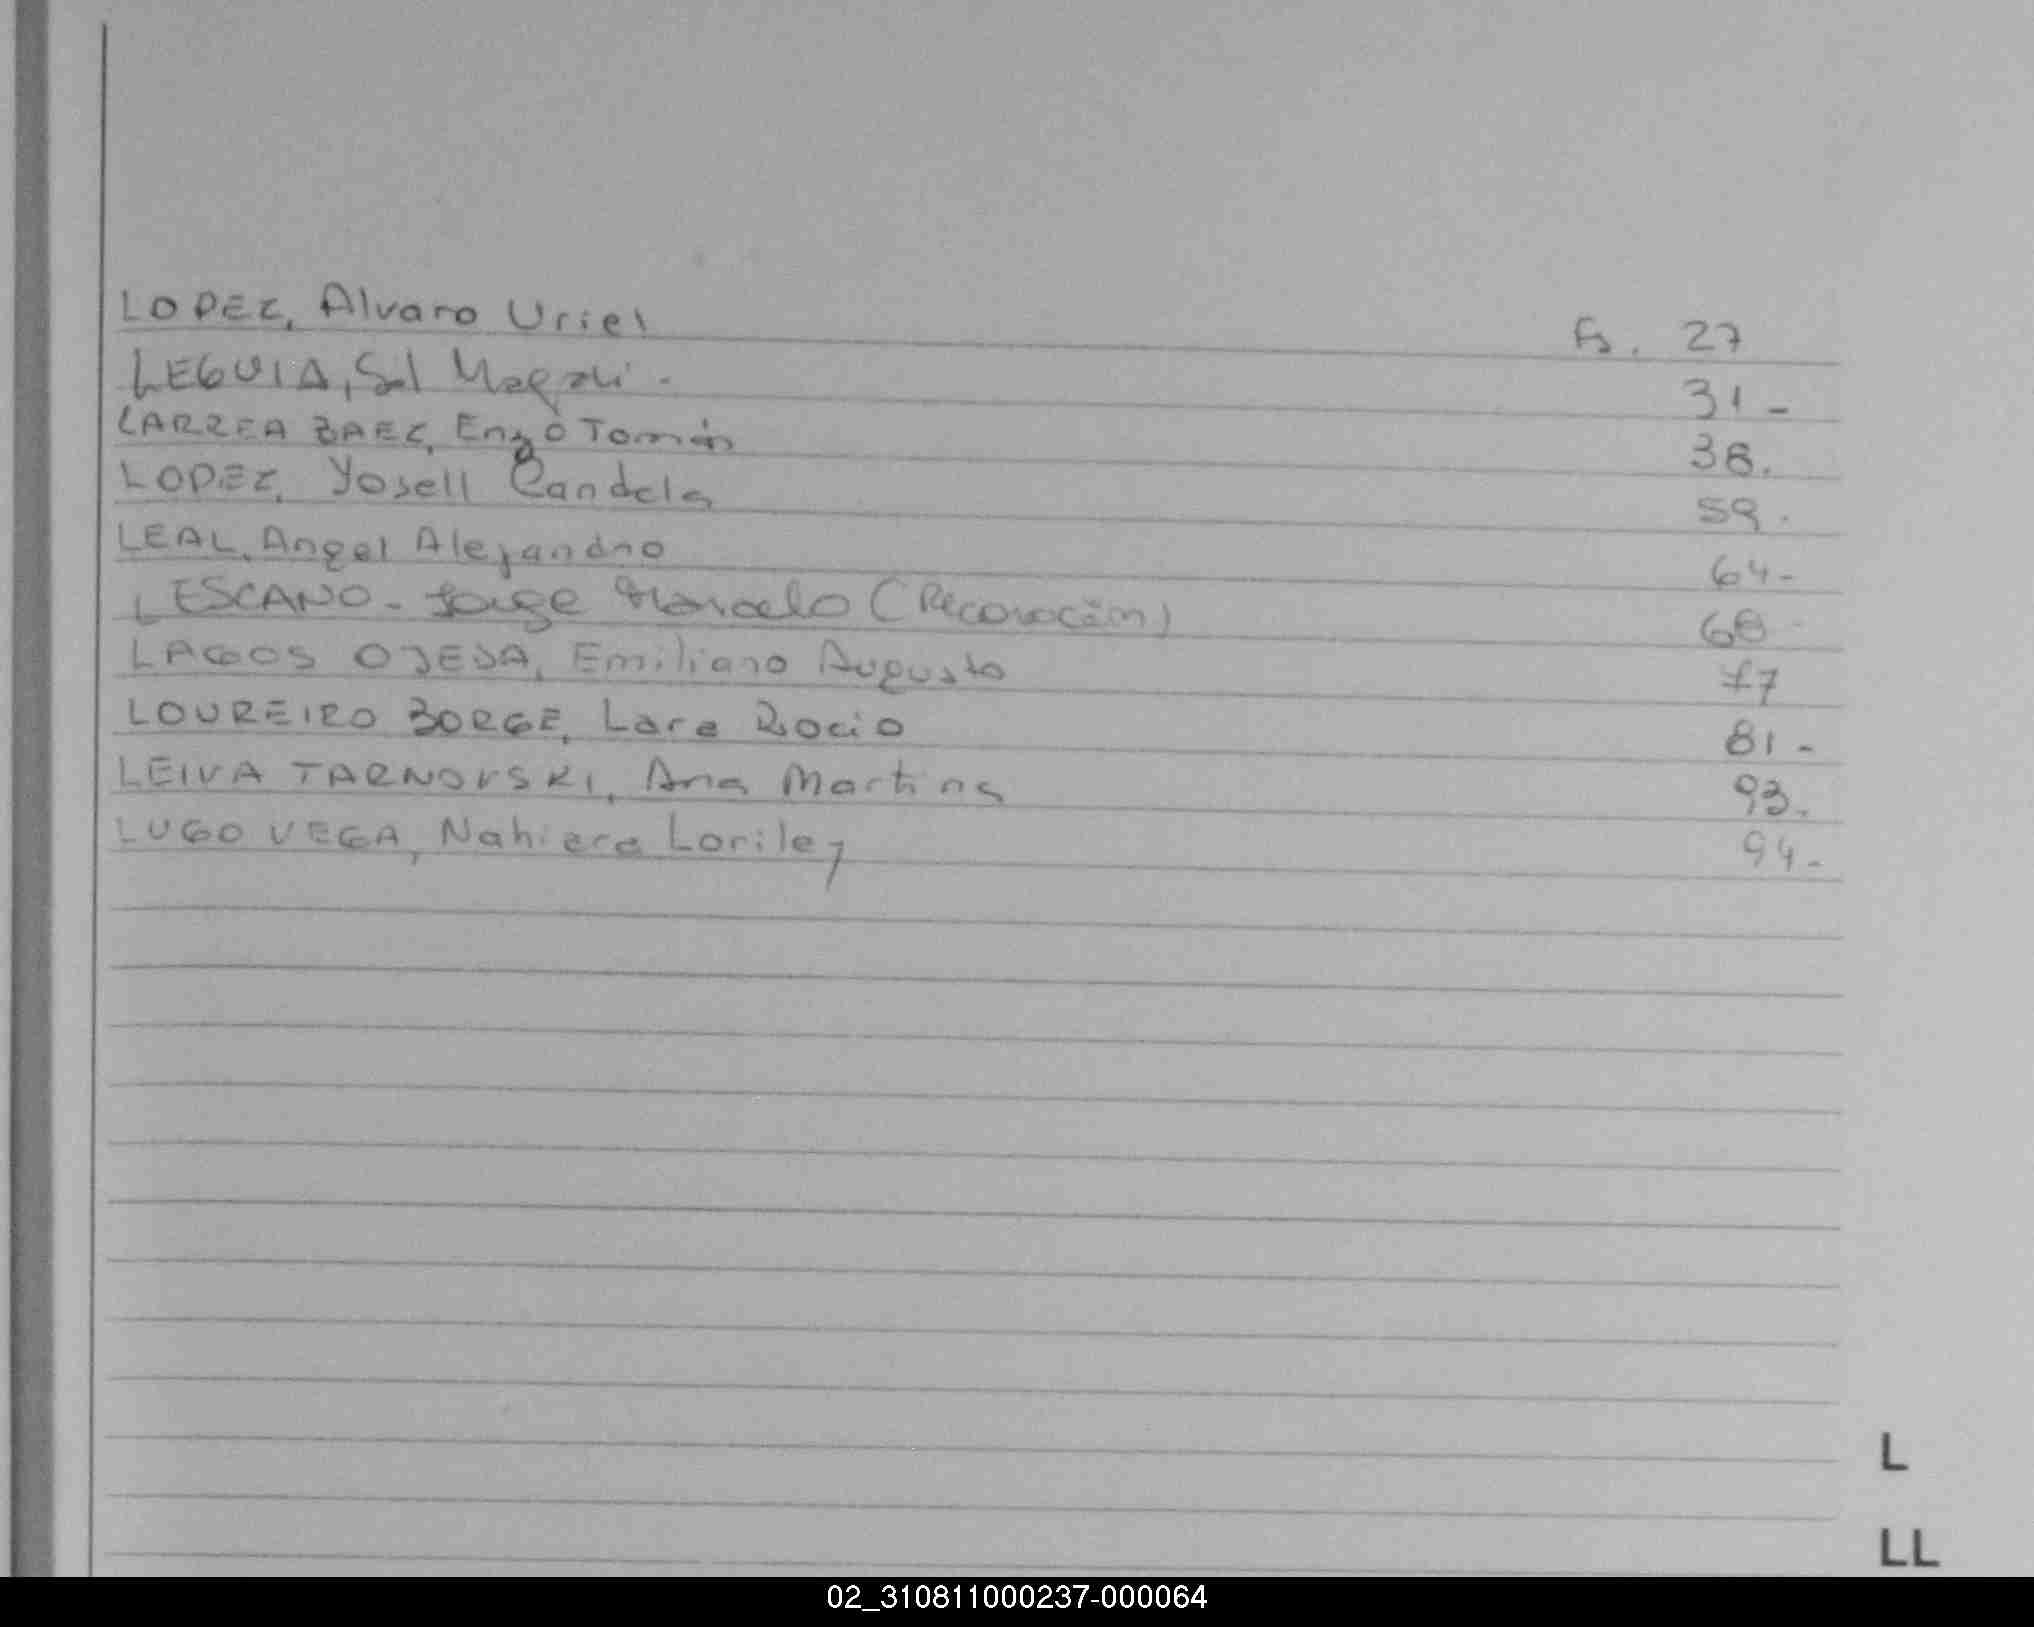 LOPEZ, Alvaro Uriel Fs. 27
LEGUIA, Sol Magali - 31-
LARREA BAEZ, Enzo Tomás 38.
LOPEZ, Yosell Candela 59.
LEAL, Angel Alejandro 64-
LESCANO - Jorge Marcelo (Reconocim) 68-
LAGOS OJEDA, Emiliano Augusto 77
LOUREIRO BORGE, Lara Rocio 81-
LEIVA TARNOVSKI, Ana Martina 93.
LUGO VEGA, Nahiara Loriley 94-
L
LL
02_310811000237-000064